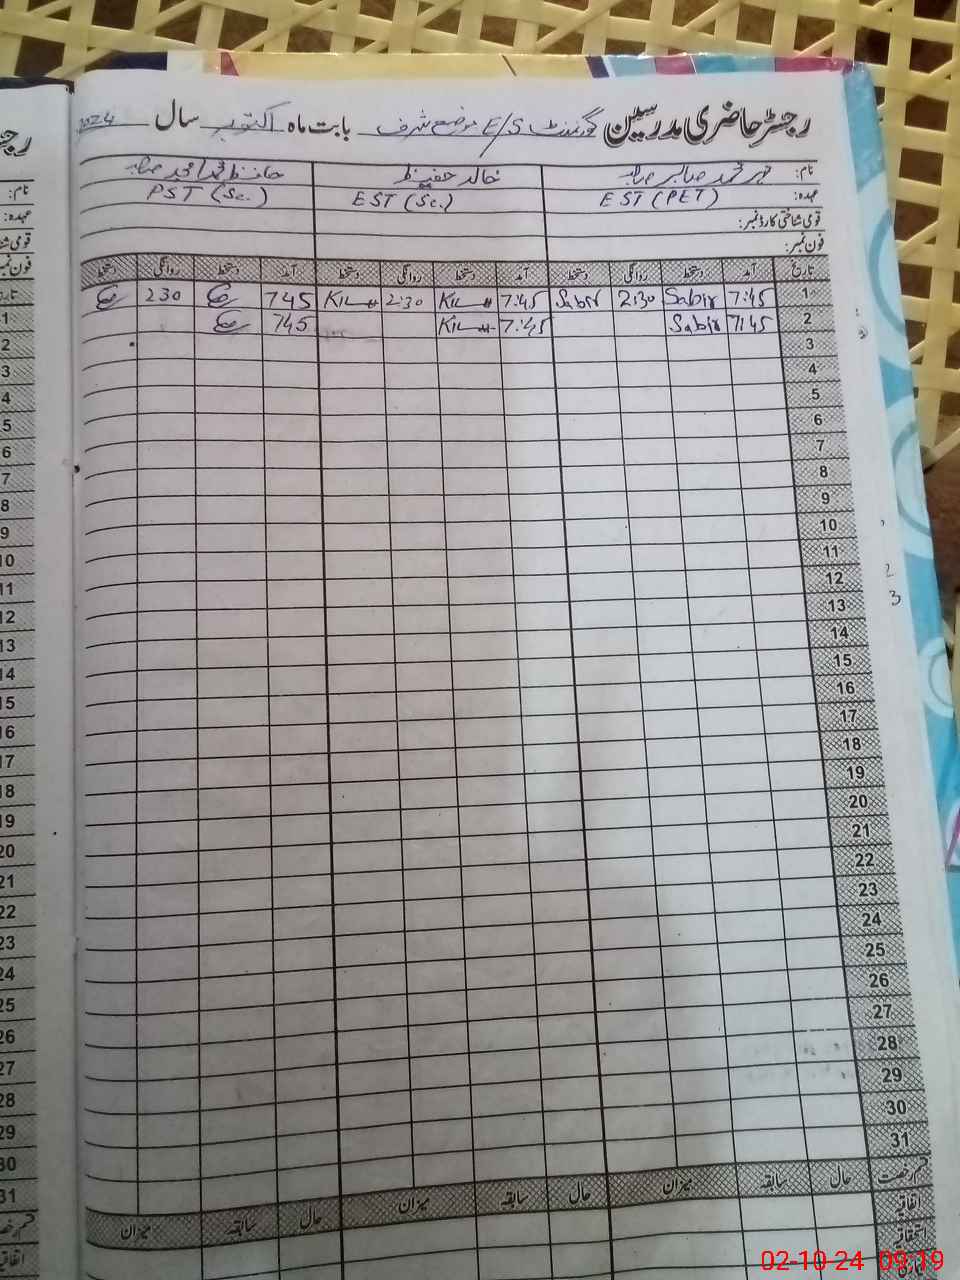 رجسٹر حاضری مدرسین گورنمنٹ E/S موضع شرف بابت ماہ اکتوبر سال 2024
نام: مہر محمد صابر صاحب خالد حفیظ حافظ محمد امجد صاحب
عہدہ: EST (PET) EST (Sc.) PST (Sc.)
قومی شناختی کارڈ نمبر:
فون نمبر:
تاریخ آمد دستخط روانگی دستخط آمد دستخط روانگی دستخط آمد دستخط روانگی دستخط
1 7:45 Sabir 2:30 Sabir 7:45 2:30 745 230
2 7:45 Sabir 7:45 745
3
4
5
6
7
8
9
10
11
12
13
14
15
16
17
18
19
20
21
22
23
24
25
26
27
28
29
30
31
قسم رخصت حال سابقہ میزان حال سابقہ میزان حال سابقہ میزان
اتفاقیہ
استحقاقیہ
02-10-24 09:19